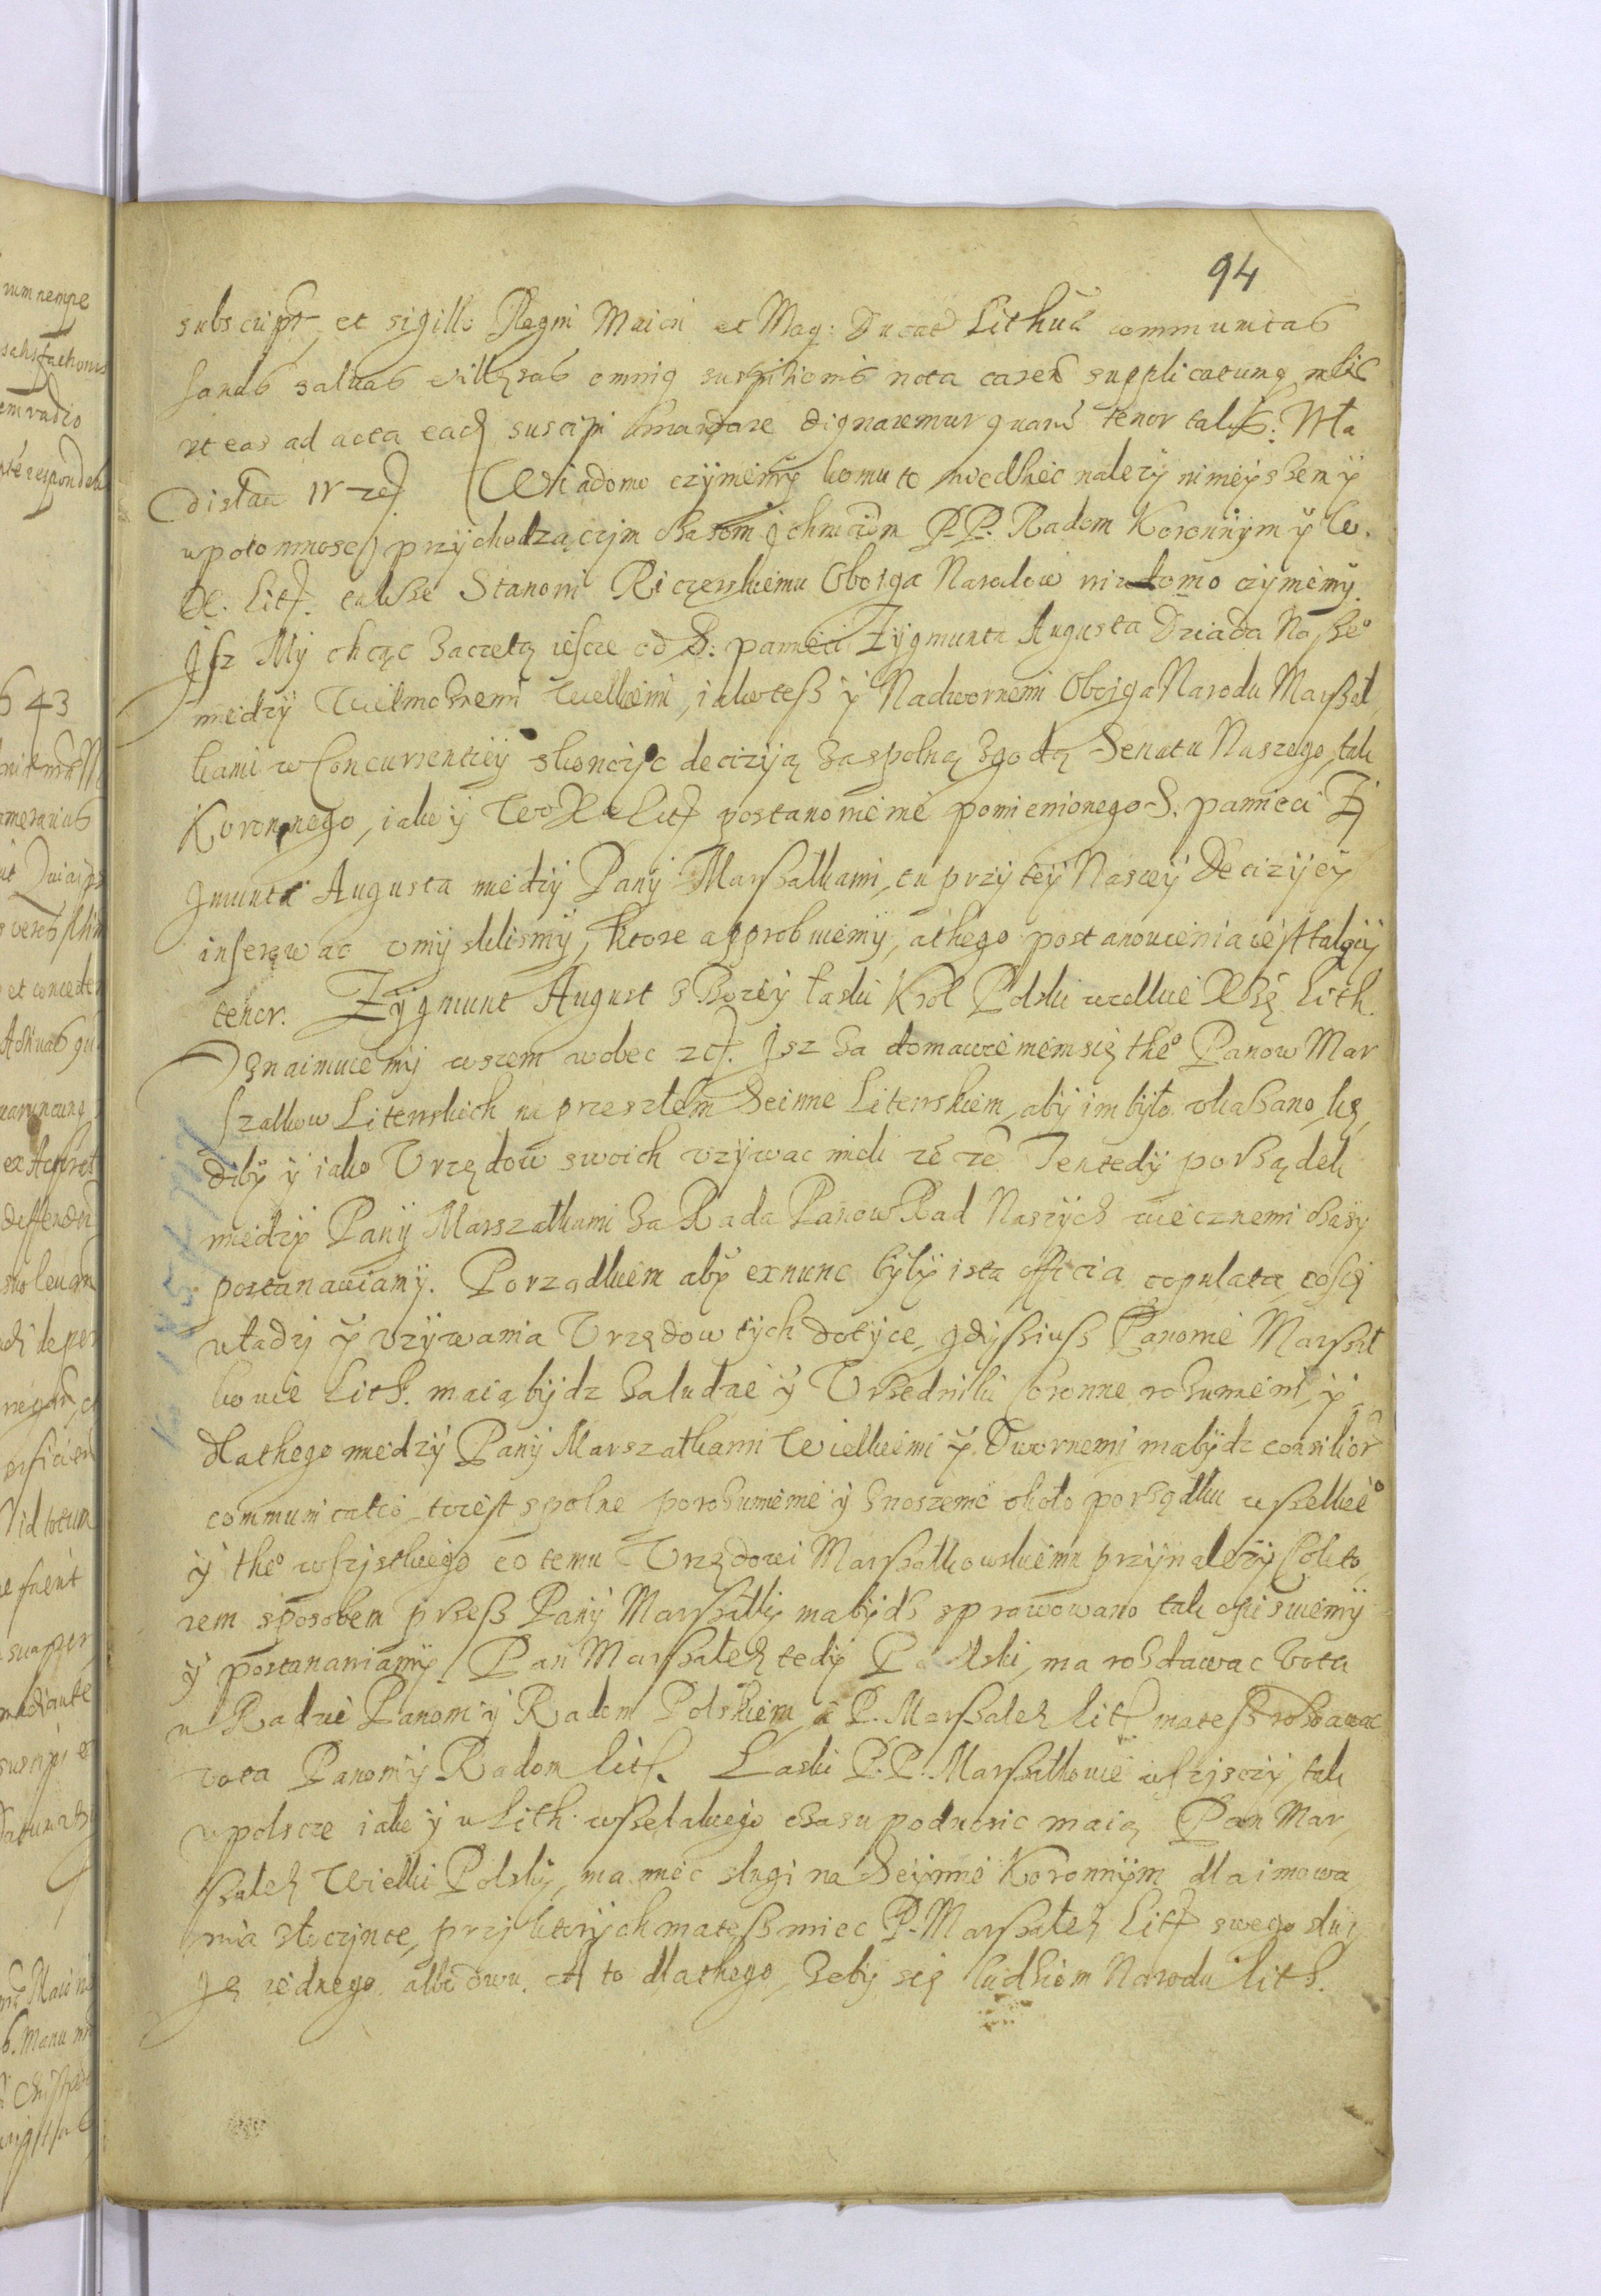 94
subscript. et sigillo Regni Maiori et Mag: Ducat Lithua communitas
sanas saluas illęsas omniq suspitionis nota caren supplicatumq nobis
vt eas ad acta eadem suscipi mandare dignaremur quarum tenor talis: Wła
dislau IV zcf. Wiadomo czyniemy komu to wiedziec nalezy ninieyszemy
wpotomnosci przychodzącym czasom Jchmciom P.P. Radom Koronnym y W.
X. Litf. także Stanowi Ricerskiemu Oboiga Narodow wiadomo czyniemy.
Jsz My chcąc zaczętą iescze od S: pamieci Zygmunta Augusta Dziada Nasze°
miedzy Wielmożnemi Wielkiemi, iakotesz y Nadwornemi Oboiga Narodu Marszał
kami w Concurrentiey skonczyc decizyią za spolną zgodą Senatu Naszego, tak
Koronnego, iako y Wo Xa Litf postanowienie pomienionego S. pamieci Zy
gmunta Augusta miedzy Pany Marszałkami, tu przy tey Naszey Decizyiey
inserować vmyslilismy, ktore approbuiemy, a thego postanowienia iest taky
tenor. Zygmunt August z Bozey łaski Krol Polski wielkie Xże Lith.
Oznaimuiemy wszem wobec zcf. Jsz za domawieniem się the° Panow Mar
szałkow Litewskich na przeszłem Seimie Litewskiem, aby im było vkazano kę
diby y iako Vrzędow swoich vzywac mieli zc zc Ten tedy porządek
miedzy Pany Marszałkami za Rada Panow Rad Naszych wiecznemi czasy
postanawiamy. Porządkiem aby exnunc byly ista officia copulata, co się
władzy y vzywania Vrzędow tych dotyce, gdysz iusz Panowie Marszał
kowie Lith. maią bydz za ludzie y Vrzedniki Coronne rozumieni, y
dlathego miedzy Pany Marszałkami Wielkiemi y Dwornemi ma bydz consilior
communicatio, to iest spolne porozumienie y znoszenie około porządku wszelkie°
y the° wszystkiego co temu Vrzędowi Marszałkowskiemu przynalezy, Co kto
rem sposobem przesz Pany Marszałky ma bydz sprawowano tak opisuiemy
y postanawiamy. Pan Marszałek tedy Polski, ma rozdawac vota
w Radzie Panom y Radom Polskiem, a P. Marszałek Litf ma tesz rozdawac
vota Panom y Radom Litf. Laski P.P. Marszałkowie wszyscy, tak
w polscze iako y w Lith. wszelakiego czasu podnosic maią Pan Mar,
szałek Wielki Polsky, ma miec slugi na Seymie Koronnym dla imowa
nia złoczynce, przy ktorych ma tesz miec P. Marszałek Litf swego słu
gę iednego albo dwu. A to dlathego, zeby się ludziom Narodu Lith.